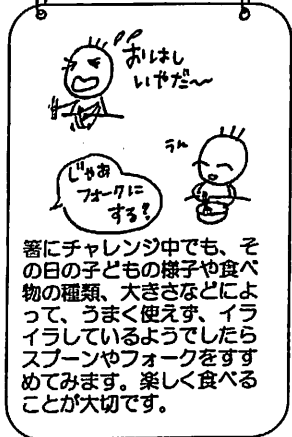 おはし
いやだ〜
うん
じゃあ
フォークに
する?
箸にチャレンジ中でも、そ
の日の子どもの様子や食べ
物の種類、大きさなどによ
って、うまく使えず、イラ
イラしているようでしたら
スプーンやフォークをすす
めてみます。楽しく食べる
ことが大切です。